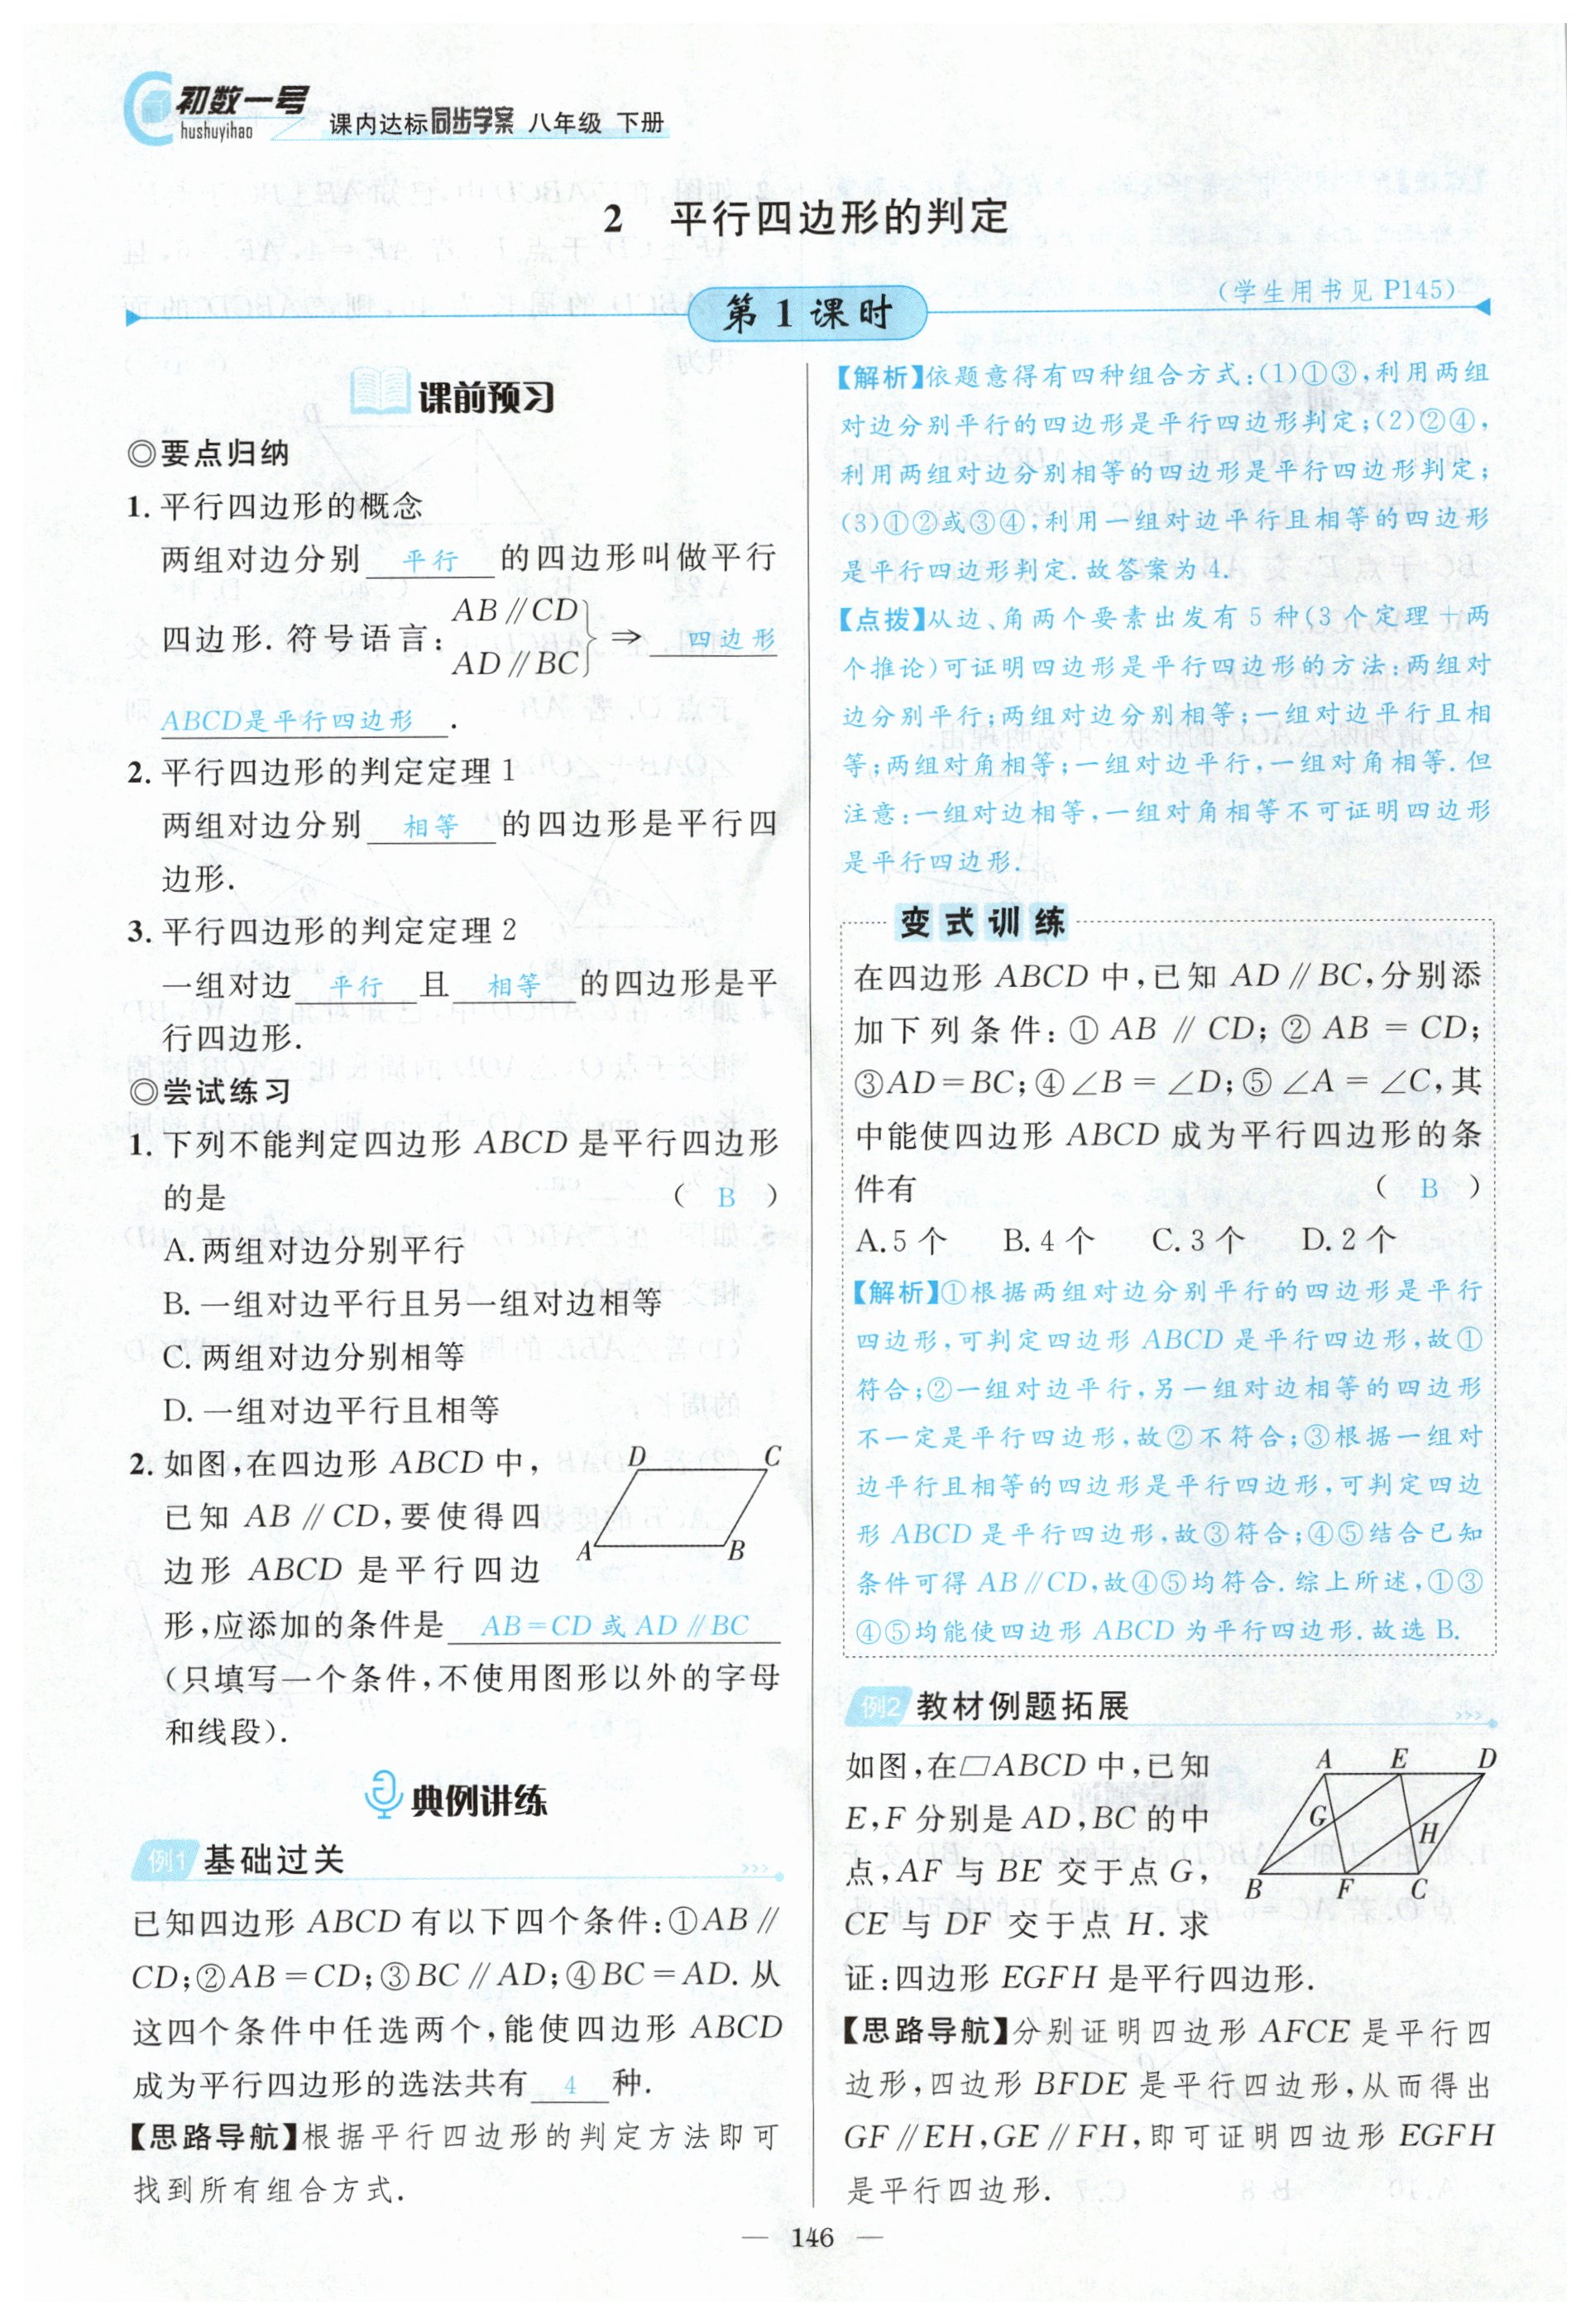 初数一号
hushuyihao
课内达标同步学案 八年级 下册
2 平行四边形的判定
(学生用书见 P145)
第 1 课时
课前预习
◎要点归纳
1. 平行四边形的概念
两组对边分别 平行 的四边形叫做平行
四边形. 符号语言: AB∥CD
AD∥BC } ⇒ 四边形
ABCD是平行四边形 .
2. 平行四边形的判定定理 1
两组对边分别 相等 的四边形是平行四
边形.
3. 平行四边形的判定定理 2
一组对边 平行 且 相等 的四边形是平
行四边形.
◎尝试练习
1. 下列不能判定四边形 ABCD 是平行四边形
的是 ( B )
A. 两组对边分别平行
B. 一组对边平行且另一组对边相等
C. 两组对边分别相等
D. 一组对边平行且相等
2. 如图,在四边形 ABCD 中,
已知 AB∥CD,要使得四
边形 ABCD 是平行四边
形,应添加的条件是 AB=CD 或 AD∥BC
(只填写一个条件,不使用图形以外的字母
和线段).
D C
A B
典例讲练
例1 基础过关
已知四边形 ABCD 有以下四个条件:①AB∥
CD;②AB=CD;③BC∥AD;④BC=AD. 从
这四个条件中任选两个,能使四边形 ABCD
成为平行四边形的选法共有 4 种.
【思路导航】根据平行四边形的判定方法即可
找到所有组合方式.
【解析】依题意得有四种组合方式:(1)①③,利用两组
对边分别平行的四边形是平行四边形判定;(2)②④,
利用两组对边分别相等的四边形是平行四边形判定;
(3)①②或③④,利用一组对边平行且相等的四边形
是平行四边形判定.故答案为 4.
【点拨】从边、角两个要素出发有 5 种(3 个定理+两
个推论)可证明四边形是平行四边形的方法:两组对
边分别平行;两组对边分别相等;一组对边平行且相
等;两组对角相等;一组对边平行,一组对角相等.但
注意:一组对边相等,一组对角相等不可证明四边形
是平行四边形.
变式训练
在四边形 ABCD 中,已知 AD∥BC,分别添
加下列条件:① AB∥CD;② AB=CD;
③AD=BC;④∠B=∠D;⑤∠A=∠C,其
中能使四边形 ABCD 成为平行四边形的条
件有 ( B )
A. 5 个 B. 4 个 C. 3 个 D. 2 个
【解析】①根据两组对边分别平行的四边形是平行
四边形,可判定四边形 ABCD 是平行四边形,故①
符合;②一组对边平行,另一组对边相等的四边形
不一定是平行四边形,故②不符合;③根据一组对
边平行且相等的四边形是平行四边形,可判定四边
形 ABCD 是平行四边形,故③符合;④⑤结合已知
条件可得 AB∥CD,故④⑤均符合.综上所述,①③
④⑤均能使四边形 ABCD 为平行四边形.故选 B.
例2 教材例题拓展
如图,在▱ABCD 中,已知
E,F 分别是 AD,BC 的中
点,AF 与 BE 交于点 G,
CE 与 DF 交于点 H. 求
证:四边形 EGFH 是平行四边形.
A E D
G H
B F C
【思路导航】分别证明四边形 AFCE 是平行四
边形,四边形 BFDE 是平行四边形,从而得出
GF∥EH,GE∥FH,即可证明四边形 EGFH
是平行四边形.
— 146 —